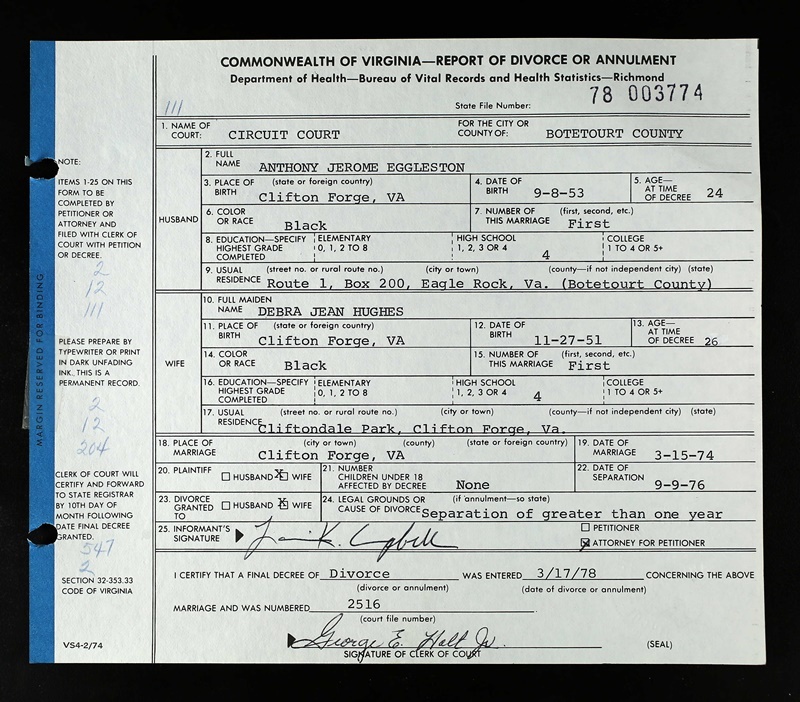 COMMONWEALTH OF VIRGINIA—REPORT OF DIVORCE OR ANNULMENT
Department of Health—Bureau of Vital Records and Health Statistics—Richmond
111
State File Number: 78 003774
1. NAME OF COURT: CIRCUIT COURT FOR THE CITY OR COUNTY OF: BOTETOURT COUNTY
HUSBAND
2. FULL NAME ANTHONY JEROME EGGLESTON
3. PLACE OF BIRTH (state or foreign country) Clifton Forge, VA 4. DATE OF BIRTH 9-8-53 5. AGE— AT TIME OF DECREE 24
6. COLOR OR RACE Black 7. NUMBER OF THIS MARRIAGE (first, second, etc.) First
8. EDUCATION—SPECIFY HIGHEST GRADE COMPLETED ELEMENTARY 0, 1, 2 TO 8 HIGH SCHOOL 1, 2, 3 OR 4 4 COLLEGE 1 TO 4 OR 5+
9. USUAL RESIDENCE (street no. or rural route no.) (city or town) (county—if not independent city) (state)
Route 1, Box 200, Eagle Rock, Va. (Botetourt County)
WIFE
10. FULL MAIDEN NAME DEBRA JEAN HUGHES
11. PLACE OF BIRTH (state or foreign country) Clifton Forge, VA 12. DATE OF BIRTH 11-27-51 13. AGE— AT TIME OF DECREE 26
14. COLOR OR RACE Black 15. NUMBER OF THIS MARRIAGE (first, second, etc.) First
16. EDUCATION—SPECIFY HIGHEST GRADE COMPLETED ELEMENTARY 0, 1, 2 TO 8 HIGH SCHOOL 1, 2, 3 OR 4 4 COLLEGE 1 TO 4 OR 5+
17. USUAL RESIDENCE (street no. or rural route no.) (city or town) (county—if not independent city) (state)
Cliftondale Park, Clifton Forge, Va.
18. PLACE OF MARRIAGE (city or town) (county) (state or foreign country) Clifton Forge, VA 19. DATE OF MARRIAGE 3-15-74
20. PLAINTIFF HUSBAND X WIFE 21. NUMBER CHILDREN UNDER 18 AFFECTED BY DECREE None 22. DATE OF SEPARATION 9-9-76
23. DIVORCE GRANTED TO HUSBAND X WIFE 24. LEGAL GROUNDS OR CAUSE OF DIVORCE (if annulment—so state) Separation of greater than one year
25. INFORMANT'S SIGNATURE PETITIONER
X ATTORNEY FOR PETITIONER
I CERTIFY THAT A FINAL DECREE OF Divorce WAS ENTERED 3/17/78 CONCERNING THE ABOVE
(divorce or annulment) (date of divorce or annulment)
MARRIAGE AND WAS NUMBERED 2516
(court file number)
George E. Holt Jr. (SEAL)
SIGNATURE OF CLERK OF COURT
MARGIN RESERVED FOR BINDING
NOTE:
ITEMS 1-25 ON THIS
FORM TO BE
COMPLETED BY
PETITIONER OR
ATTORNEY AND
FILED WITH CLERK OF
COURT WITH PETITION
OR DECREE.
2
12
111
PLEASE PREPARE BY
TYPEWRITER OR PRINT
IN DARK UNFADING
INK. THIS IS A
PERMANENT RECORD.
2
12
204
CLERK OF COURT WILL
CERTIFY AND FORWARD
TO STATE REGISTRAR
BY 10TH DAY OF
MONTH FOLLOWING
DATE FINAL DECREE
GRANTED.
547
2
SECTION 32-353.33
CODE OF VIRGINIA
VS4-2/74